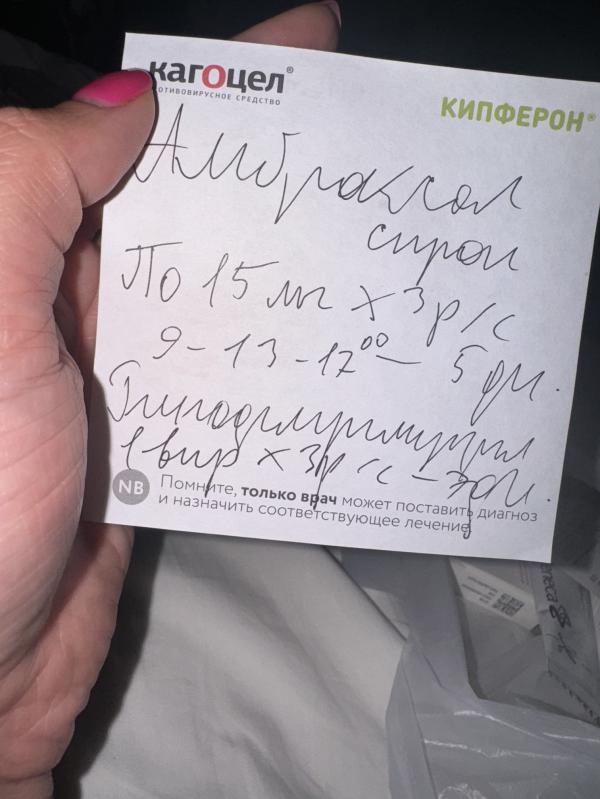 кагоцел®
ПРОТИВОВИРУСНОЕ СРЕДСТВО
КИПФЕРОН®
Амброксол
сироп
По 15 мг х 3 р/с
9 - 13 - 17⁰⁰ - 5 дн.
1 впр х 3 р/с - 3 дн.
NB
Помните, только врач может поставить диагноз
и назначить соответствующее лечение